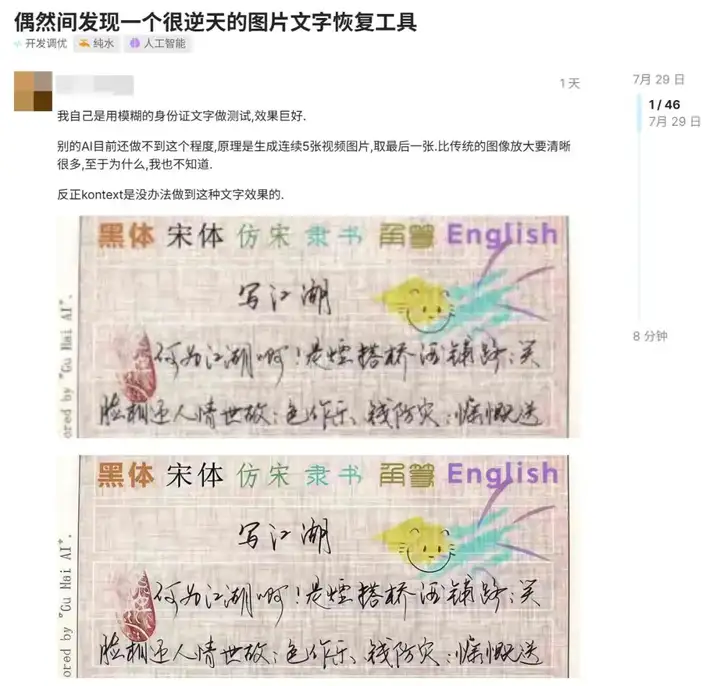 偶然间发现一个很逆天的图片文字恢复工具
开发调优 纯水 人工智能
1 天
7月 29 日
1 / 46
7月 29 日
我自己是用模糊的身份证文字做测试,效果巨好.
别的AI目前还做不到这个程度,原理是生成连续5张视频图片,取最后一张.比传统的图像放大要清晰
很多,至于为什么,我也不知道.
反正kontext是没办法做到这种文字效果的.
8 分钟
黑体 宋体 仿宋 隶书 English
写江湖
何为江湖啊!是烟搭桥酒铺路;笑
脸相迎人情世故;色作乐、钱防灾;慷慨送
ored by "Gu Hai AI".
黑体 宋体 仿宋 隶书 English
写江湖
何为江湖啊!是烟搭桥酒铺路;笑
脸相迎人情世故;色作乐、钱防灾;慷慨送
ored by "Gu Hai AI".